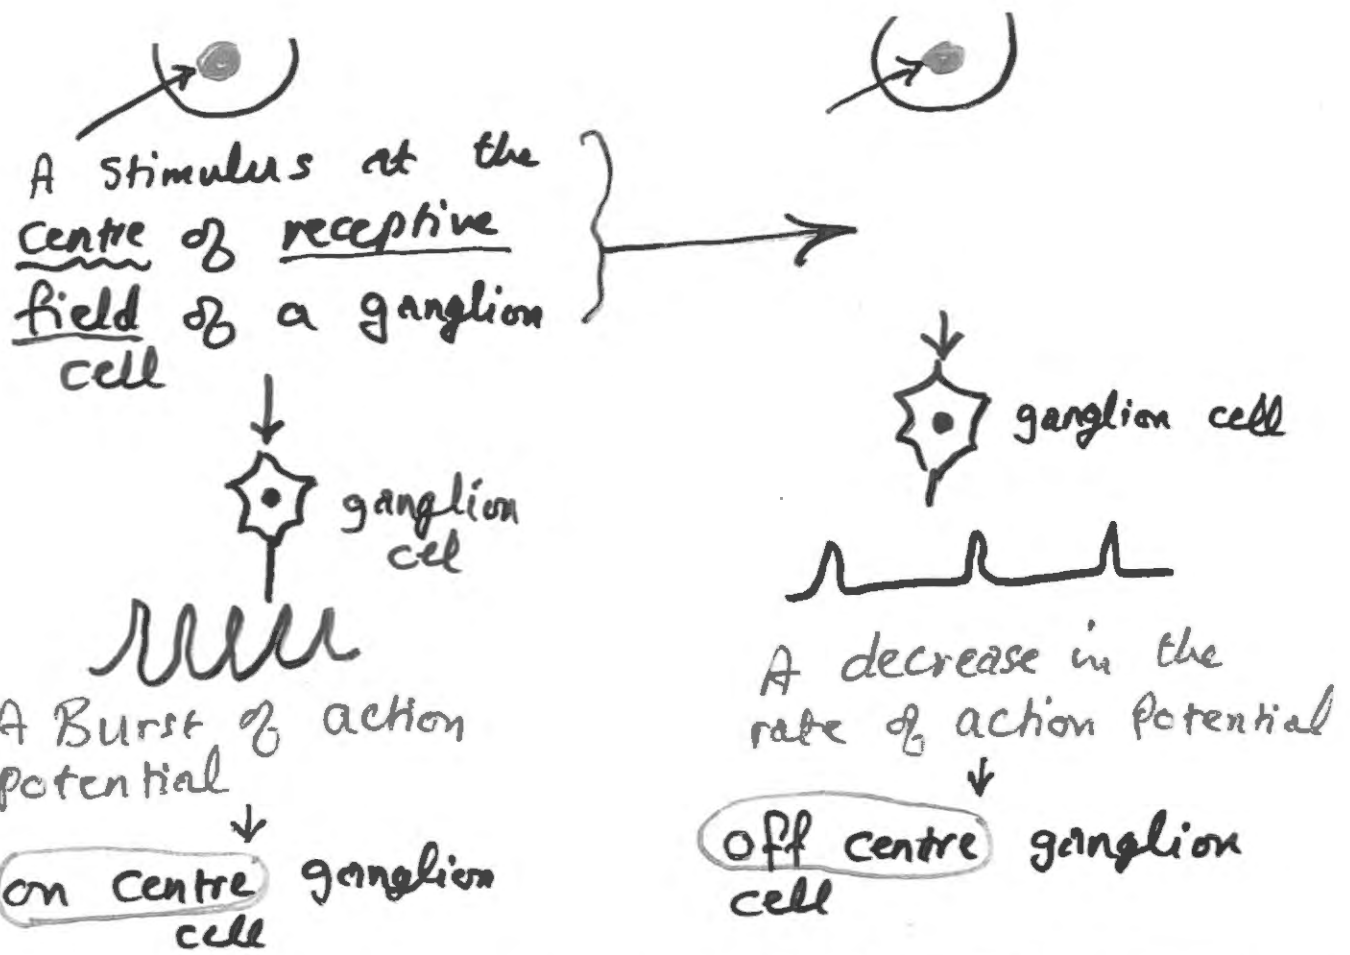 A stimulus at the
centre of receptive
field of a ganglion
cell
ganglion
cel
A Burst of action
potential
on centre ganglion
cell
ganglion cell
A decrease in the
rate of action potential
off centre ganglion
cell